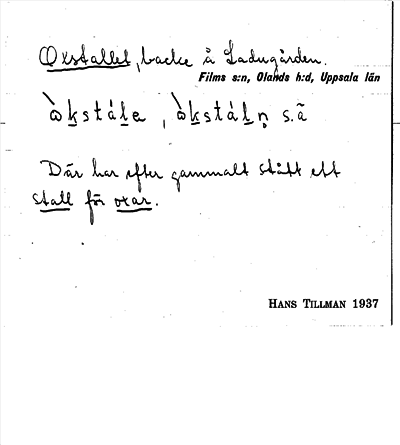 Oxstallet, backe å Ladugården.
Films s:n, Olands h:d, Uppsala län
s. ã
Där har efter gammalt stått ett
stall för oxar.
HANS TILLMAN 1937